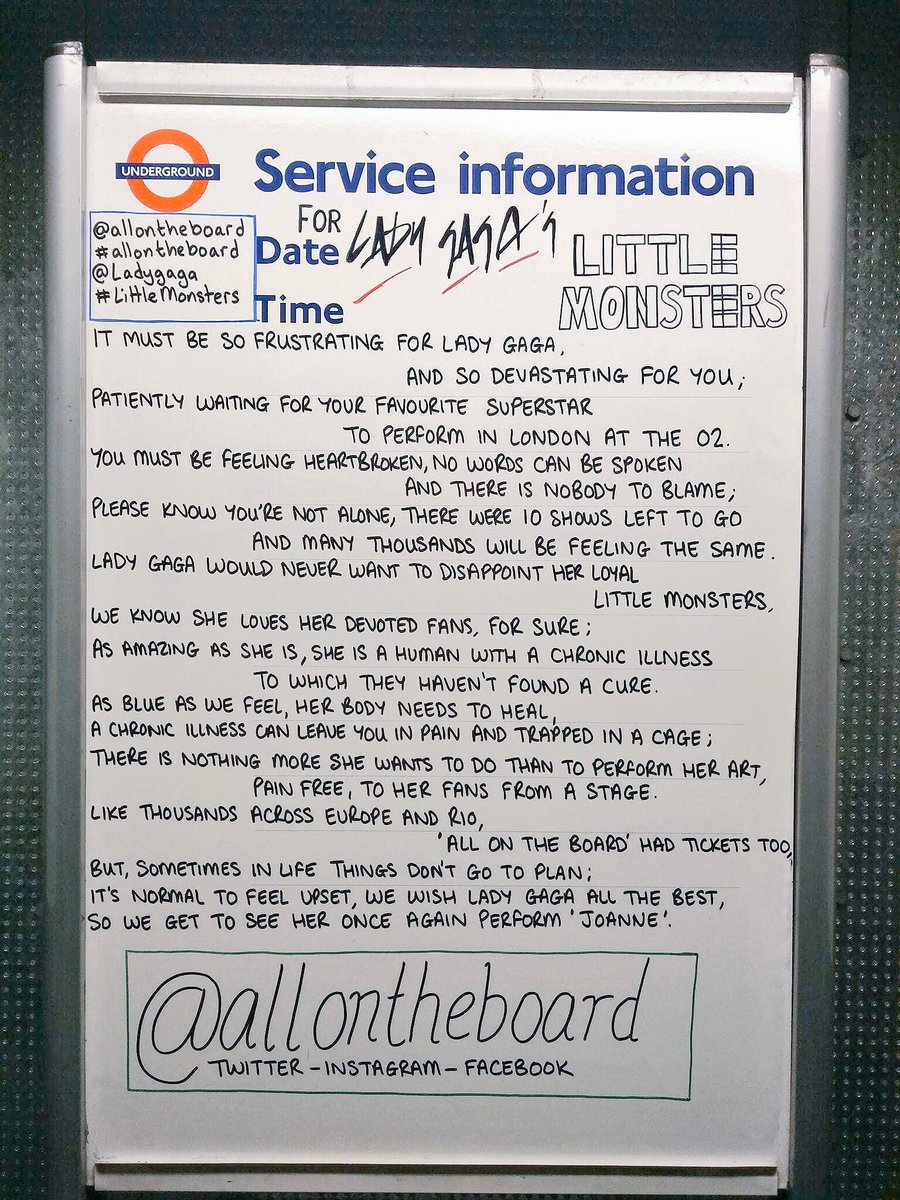 UNDERGROUND
Service information
@allontheboard
#allontheboard
@Ladygaga
#LittleMonsters
FOR
Date LADY GAGA'S
LITTLE
MONSTERS
Time
IT MUST BE SO FRUSTRATING FOR LADY GAGA,
AND SO DEVASTATING FOR YOU;
PATIENTLY WAITING FOR YOUR FAVOURITE SUPERSTAR
TO PERFORM IN LONDON AT THE O2.
YOU MUST BE FEELING HEARTBROKEN, NO WORDS CAN BE SPOKEN
AND THERE IS NOBODY TO BLAME;
PLEASE KNOW YOU'RE NOT ALONE, THERE WERE 10 SHOWS LEFT TO GO
AND MANY THOUSANDS WILL BE FEELING THE SAME.
LADY GAGA WOULD NEVER WANT TO DISAPPOINT HER LOYAL
LITTLE MONSTERS,
WE KNOW SHE LOVES HER DEVOTED FANS, FOR SURE;
AS AMAZING AS SHE IS, SHE IS A HUMAN WITH A CHRONIC ILLNESS
TO WHICH THEY HAVEN'T FOUND A CURE.
AS BLUE AS WE FEEL, HER BODY NEEDS TO HEAL,
A CHRONIC ILLNESS CAN LEAVE YOU IN PAIN AND TRAPPED IN A CAGE;
THERE IS NOTHING MORE SHE WANTS TO DO THAN TO PERFORM HER ART,
PAIN FREE, TO HER FANS FROM A STAGE.
LIKE THOUSANDS ACROSS EUROPE AND RIO,
'ALL ON THE BOARD' HAD TICKETS TOO,
BUT, SOMETIMES IN LIFE THINGS DON'T GO TO PLAN;
IT'S NORMAL TO FEEL UPSET, WE WISH LADY GAGA ALL THE BEST,
SO WE GET TO SEE HER ONCE AGAIN PERFORM 'JOANNE'.
@allontheboard
TWITTER - INSTAGRAM - FACEBOOK